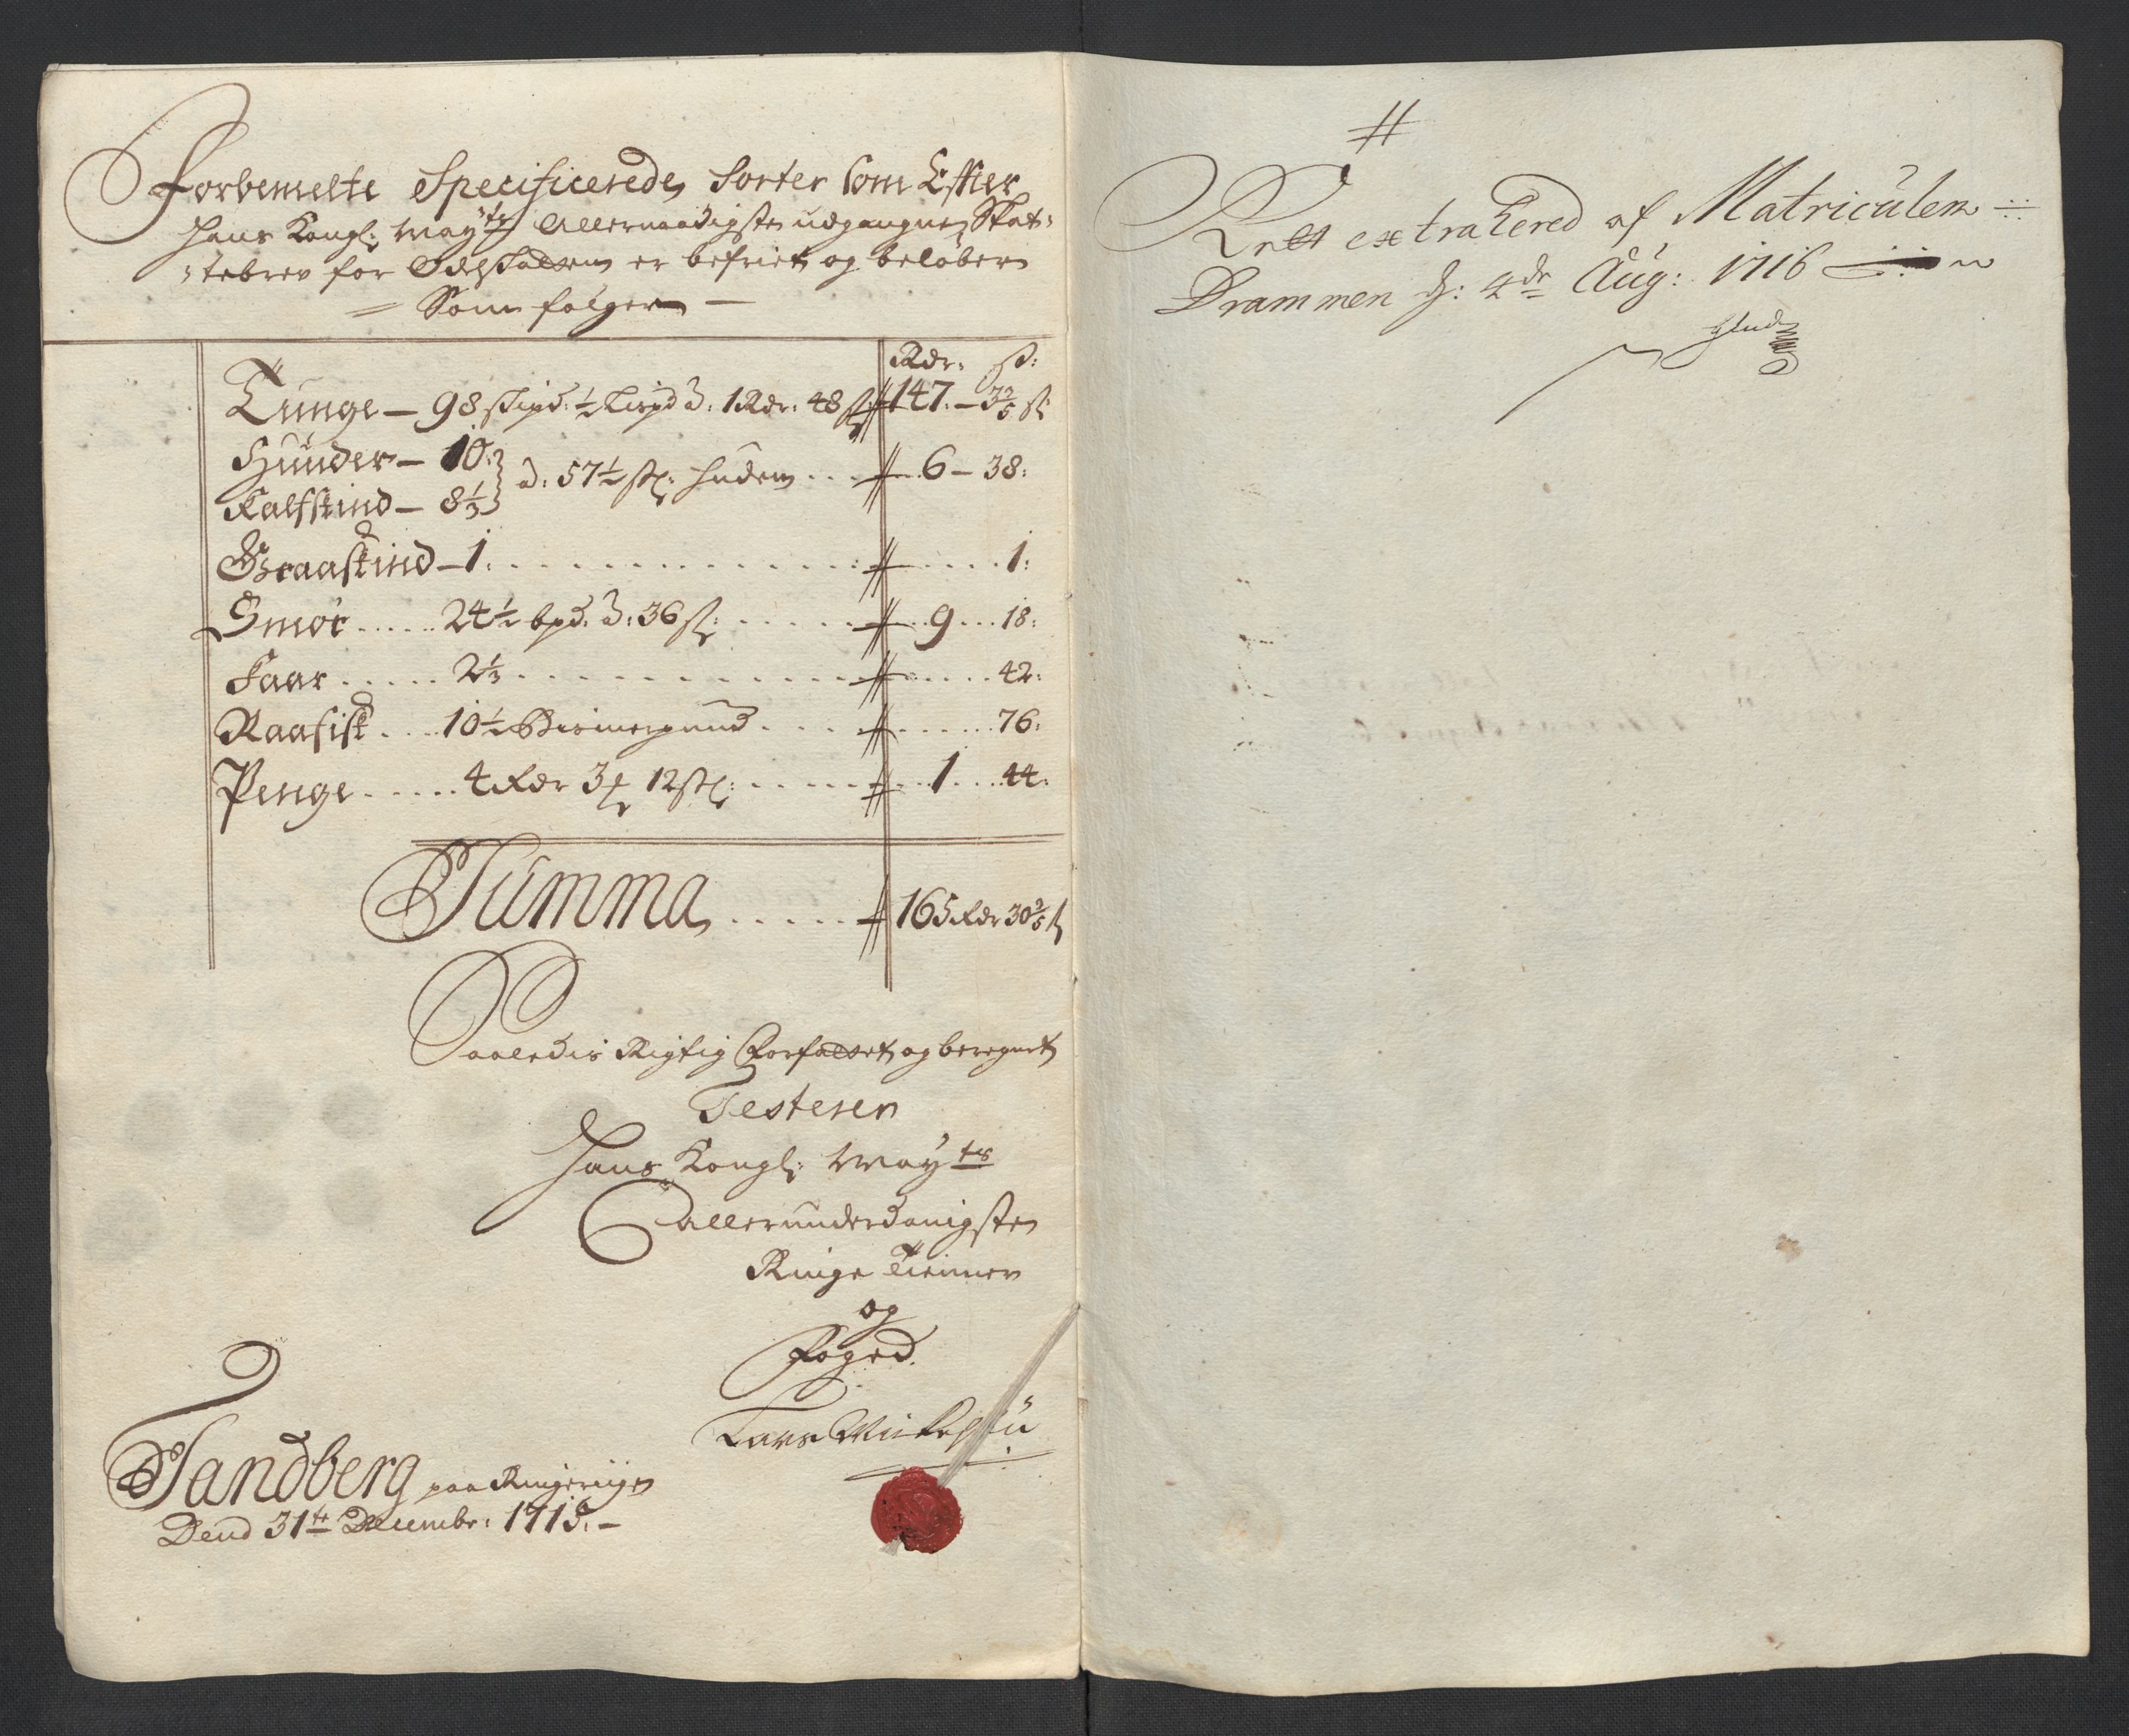 Forbemelte Specificerede Sorter som Effter
Hans Kongl: May:ts Allernaadigste udgangne Skat-
tebrev for Odelskatten er befriet og beløber
Som følger
Rdr: s:
Tunge — 98 skipd: ½ Lispd a: 1 Rdr: 48 s 147 — 3 3/5 s
Huuder — 10:
a: 57½ s: huden . . . 6 — 38:
Kalfskind — 8⅓
Graaskind — 1: . . . 1:
Smør . . . 24½ bpd: a: 36 s: . . . 9 . . 18:
Faar . . . 2⅓ . . . 42:
Raafisk . . . 10½ Bismerpund . . . 76:
Penge . . . 4 Rdr 3 12 s: . . . 1 . . 44:
Summa . . . 165 Rdr 30 3/5 s
Saaledis Rigtig forfattet og beregnet
Testerer
Hans Kongl: Mayts
allerunderdanigste
Ringe Tienner
og
Foged
Lars
Sandberg paa Ringerige
Dend 31te Decembr: 1715. —
Rett extrahered af Matriculen
Drammen d: 4de Aug: 1716